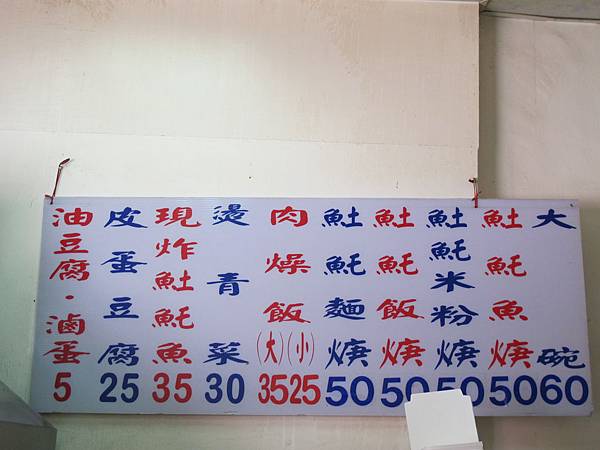 大碗 60
𩵚魠魚焿 50
𩵚魠米粉焿 50
𩵚魠飯焿 50
𩵚魠麵焿 50
肉燥飯(大)(小) 35 25
燙青菜 30
現炸𩵚魠魚 35
皮蛋豆腐 25
油豆腐·滷蛋 5